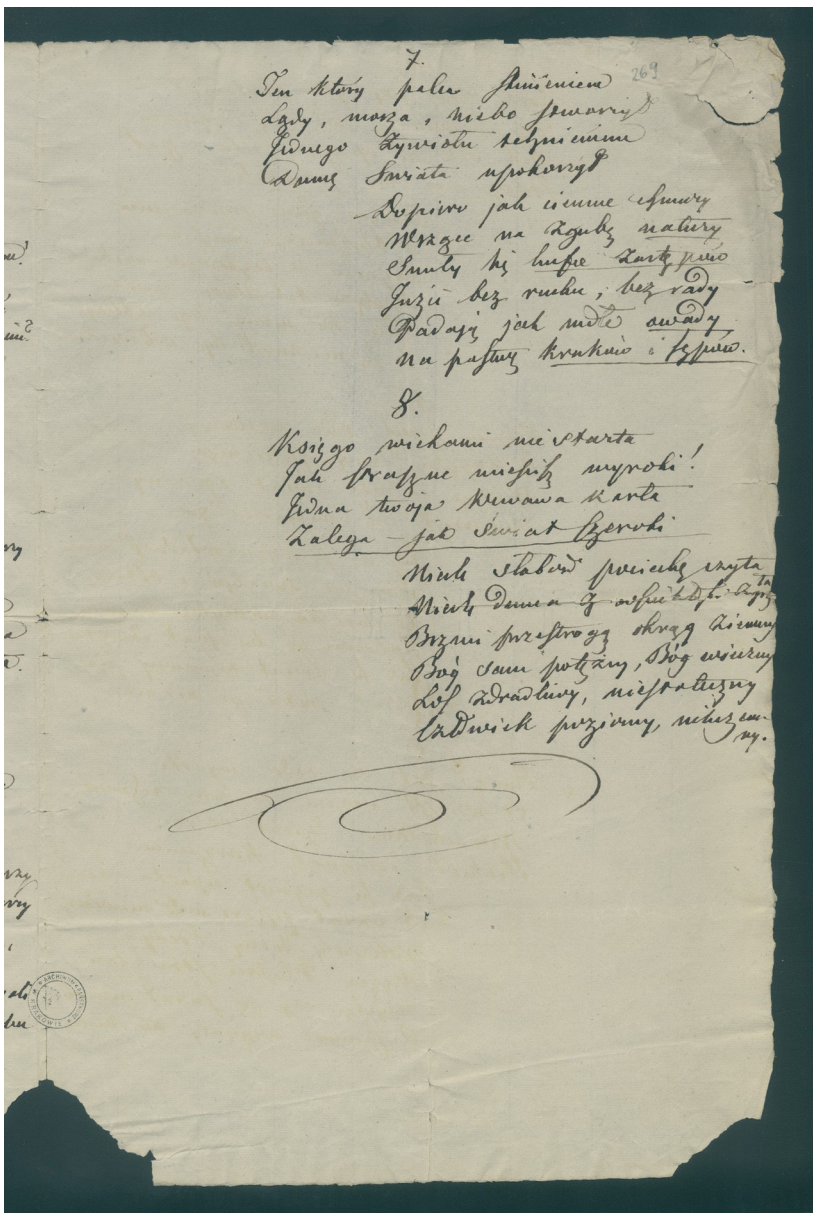 269
7.
Ten który palca skinieniem
Lądy, morza, niebo stworzył
Jednego Żywiołu tchnieniem
Dumę Świata upokorzył
Dopiero jak ciemne chmury
Wrzące na zgubę natury
Snuły się hufce Zastępów
Jużci bez ruchu, bez rady
Padają jak mdłe owady
na pastwę kruków i sępów.
8.
Księgo wiekami nie starta
Jak straszne mieścisz wyroki!
Jedna twoja krwawa karta
Zalega – jak świat szeroki
Niech słabość pociechę czyta
Niech duma z
Brzmi przestrogą okrąg ziemny
Bóg sam potężny, Bóg wieczny
Los zdradliwy, niestateczny
Człowiek poziomy, nikczem-
ny.